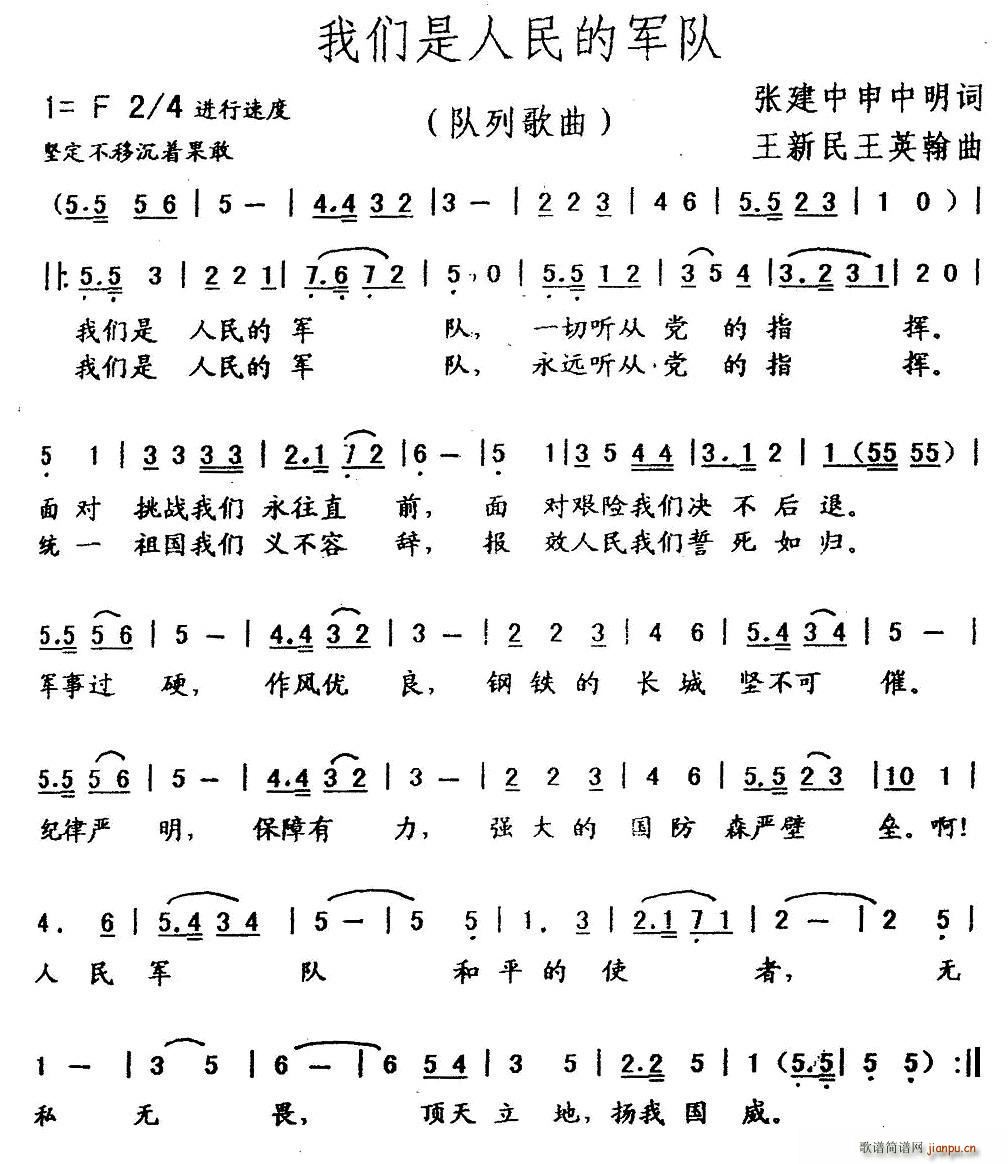 我们是人民的军队
1= F 2/4 进行速度
（队列歌曲）
张建中申中明词
坚定不移沉着果敢
王新民王英翰曲
(5.5 5 6 | 5 — | 4.4 3 2 | 3 — | 2 2 3 | 4 6 | 5.5 2 3 | 1 0 ) |
|: 5.5 3 | 2 2 1 | 7.6 7 2 | 5 , 0 | 5.5 1 2 | 3 5 4 | 3.2 3 1 | 2 0 |
我们是 人民的 军 队, 一切听从 党 的 指 挥.
我们是 人民的 军 队, 永远听从 党 的 指 挥.
5 1 | 3 3 3 3 | 2.1 7 2 | 6 — | 5 1 | 3 5 4 4 | 3.1 2 | 1 (55 55) |
面对 挑战我们 永往直 前, 面 对艰险我们决 不 后 退.
统一 祖国我们 义不容 辞, 报 效人民我们誓 死 如 归.
5.5 5 6 | 5 — | 4.4 3 2 | 3 — | 2 2 3 | 4 6 | 5.4 3 4 | 5 — |
军事过 硬, 作风优 良, 钢 铁 的 长 城 坚不可 催.
5.5 5 6 | 5 — | 4.4 3 2 | 3 — | 2 2 3 | 4 6 | 5.5 2 3 | 10 1 |
纪律严 明, 保障有 力, 强 大 的 国 防 森严壁 垒. 啊!
4 . 6 | 5.4 3 4 | 5 — | 5 5 | 1 . 3 | 2.1 7 1 | 2 — | 2 5 |
人 民 军 队 和 平 的 使 者, 无
1 — | 3 5 | 6 — | 6 5 4 | 3 5 | 2.2 5 | 1 (5.5 | 5 5) :||
私 无 畏, 顶天 立 地, 扬我 国 威.
歌谱简谱网 jianpu.cn